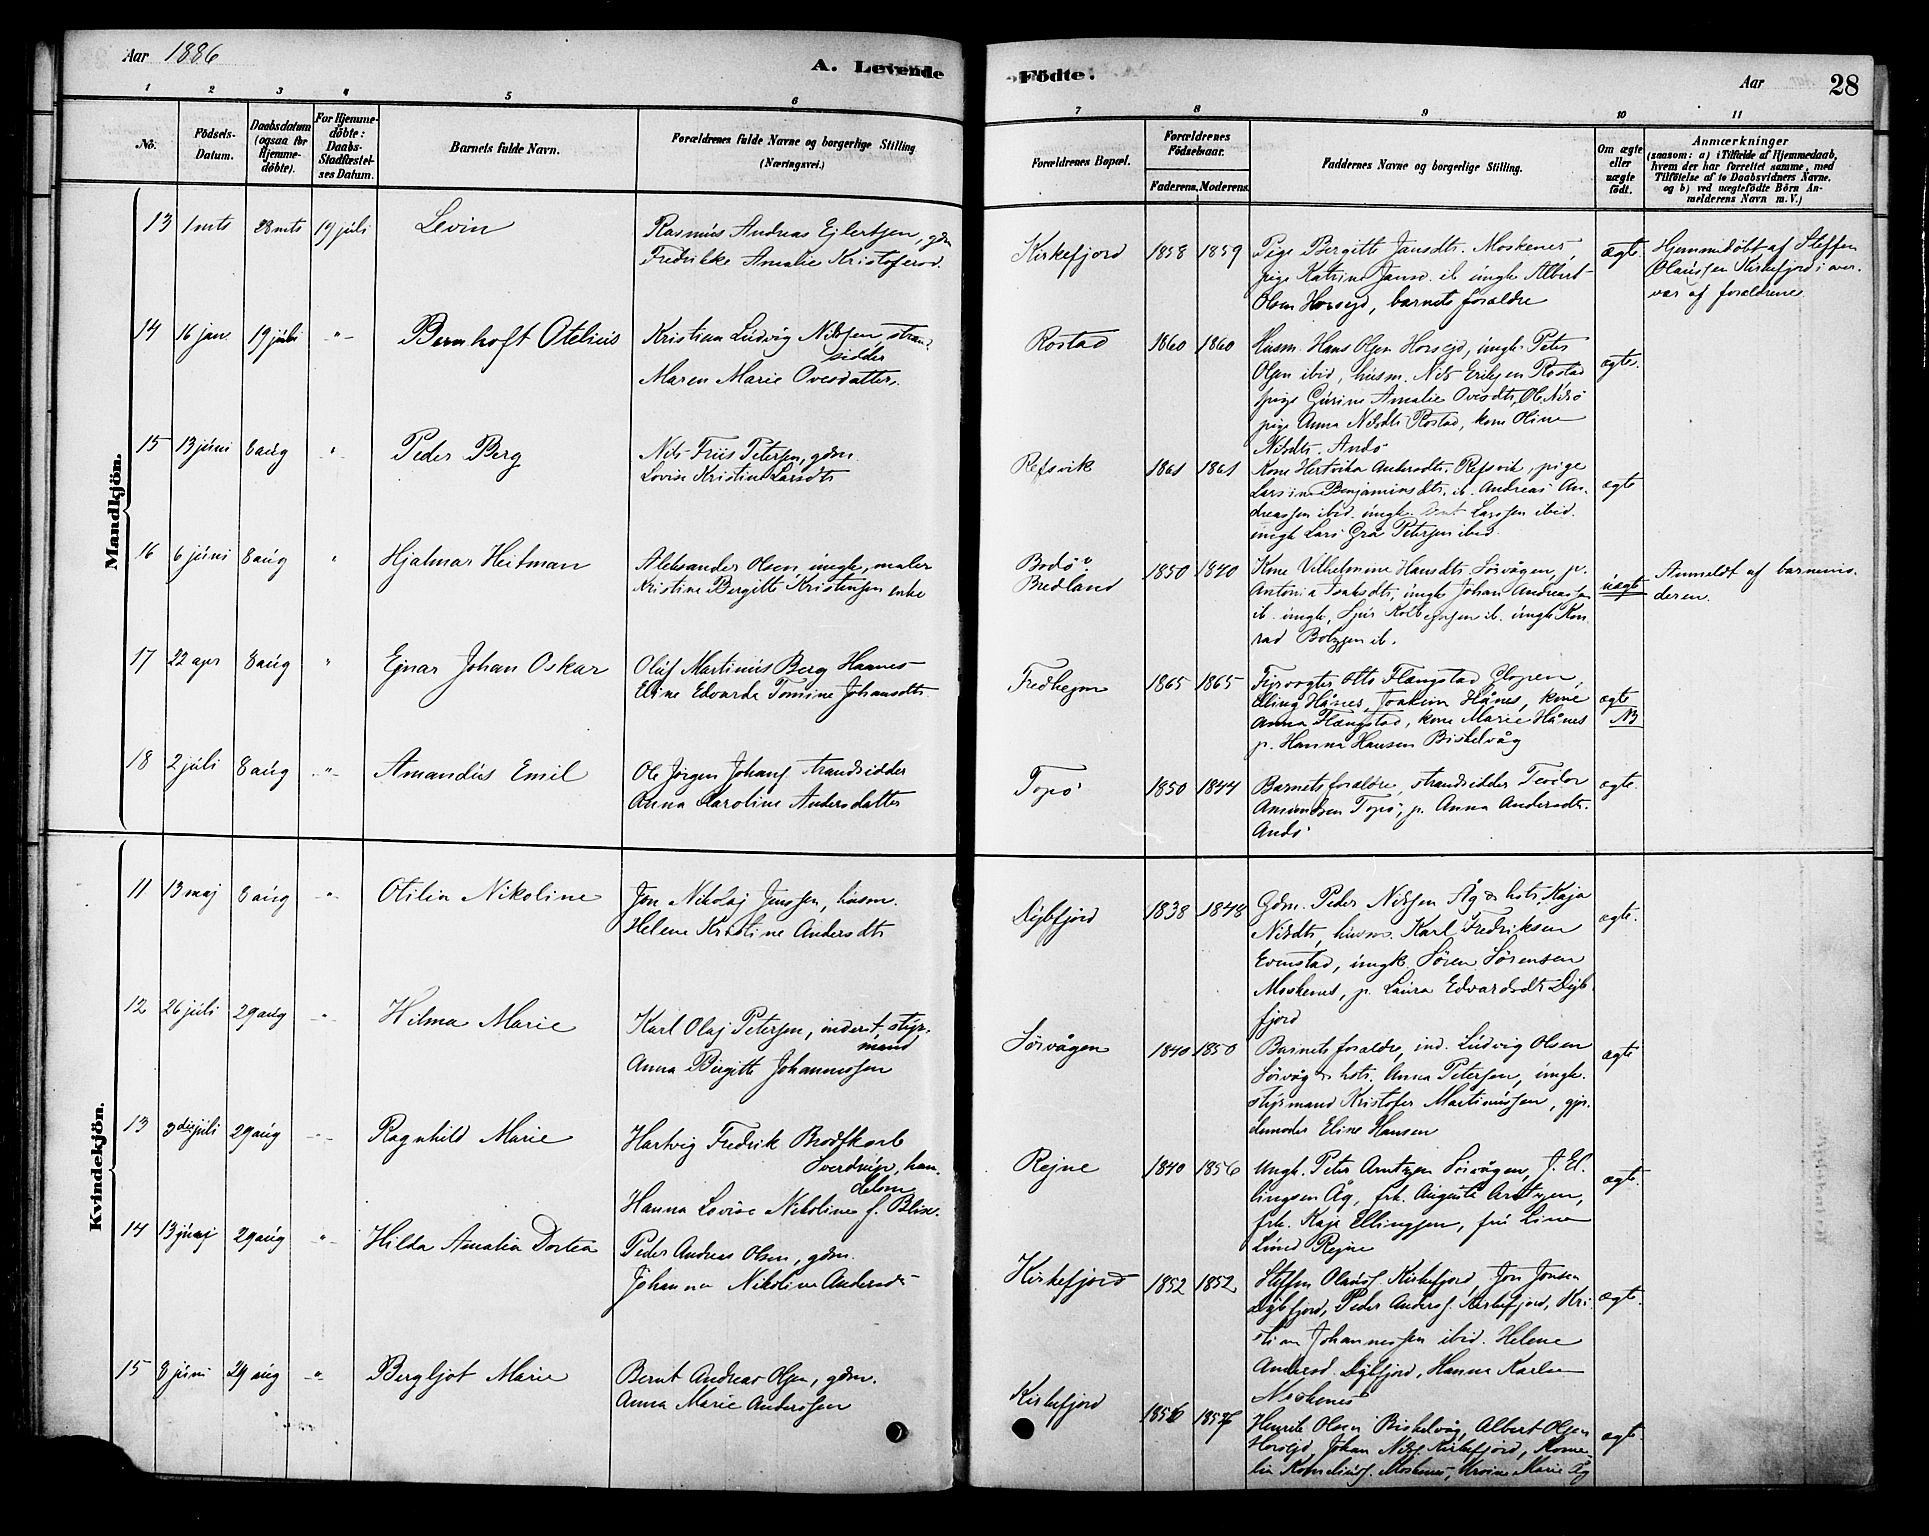 Aar 1886
A. Levende
Födte.
Aar
28
1 2 3 4 5 6
7 8 9 10 11
No.
Födsels-Datum.
Daabsdatum (ogsaa for Hjemme-döbte).
For Hjemme-döbte: Daabs-Stadfæstel-ses Datum.
Barnets fulde Navn.
Forældrenes fulde Navne og borgerlige Stilling (Næringsvei.)
Forældrenes Bopæl.
Forældrenes Födselsaar.
Faderens. Moderens.
Faddernes Navne og borgerlige Stilling.
Om ægte eller uægte födt.
Anmærkninger
(saasom: a) i Tilfælde af Hjemmedaab, hvem der har forrettet samme, med Tilföielse af to Daabsvidners Navne. og b) ved uægtefödte Börn An-melderens Navn m. V.)
Mandkjön.
13 1 mts 28 mts 19 júli Levin
Rasmús Andreas Ejlertsen, gdm
Fredrikke Amalie Kristofersd.
Kirkefjord 1858 1859
Pige Bergitt Jansdt. Moskenes,
pige Katrine Jansd. ib. ungk. Albert
Olsen Horseid, barnets foraldre
ægte.
Hjemmedøbt af Steffen
Olaússen Kirkefjord i over-
vær af foraldrene
14 16 jan. 19 júli " Bernhoft Otelius
Kristian Lúdvig Nilssen, stran-
sidder
Maren Marie Ovesdatter.
Rostad 1860 1860
Husm. Hans Olsen Horseid, ungk. Peter
Olsen ibid, húsm. Nils Eriksen Rostad
pige Gúrine Amalie Ovesdt,
pige Anna Nilsdt. Rostad, kone Oline
Nilsdt. Andø
ægte.
15 13 júni 8 aúg " Peder Berg
Nils Friis Petersen, gdm.
Lovise Kristine Larsdt
Refsvik 1861 1861
Kone Hertvika Andersdt. Refsvik, pige
Larsine Benjaminsdt. ib. Andreas An-
dreassen ibid. ungk. Larssen ibid.
ungk Lars Petersen ibid.
ægte
16 6 júni 8 aúg " Hjalmar Heitman
Aleksander Olsen úngk., maler
Kristine Bergitte Kristensen enke
Bodø
Bredland 1850 1840
Kone Vilhelmine Hansdt. Sørvågen, p.
Antonia Isaksdt, ungk Johan Andreassen
ib. ungk. ib. ungk Kon
rad ib.
úægte
Anmeldt af barnemo-
deren.
17 22 apr 8 aúg " Ejnar Johan Oskar
Olúf Martinús Berg Haanes
Eline Edvarda Tomine Johansdt
Fredhejm 1865 1865
Fyrvogter Otto Flængstad Glopen,
Elling Hånes, Joakim Hånes, kone
Anna Flængstad, kone Marie Hånes
p. Hanna Hansen Biskelvåg
ægte
NB
18 2 júli 8 aúg " Amandús Emil
Ole Jørgen Johans. strandsidder
Anna Karoline Andersdatter
Topø 1850 1844
Barnets foraldre, strandsidder Teodor
Amúndsen Topø, p. Anna Andersdt.
Andø
ægte.
Kvindekjön.
11 13 maj 8 aúg " Otilia Nikoline
Jon Nikolaj Jenssen, húsm.
Helene Kristine Andersdt
Dybfjord 1838 1848
Gdm. Peder Nilssen Åg & hst. Kaja
Nilsdt, húsm. Karl Fredriksen
Evenstad, úngk. Søren Sørensen
Moskenes, p. Laura Edvardsdt Dyb-
fjord
ægte.
12 26 júli 29 aúg " Hilma Marie
Karl Olaj Petersen, inderst, styr-
mand
Anna Birgitte Johannessen
Sørvågen 1840 1850
Barnets foraldre, ind. Lúdvig Olsen
Sørvåg & hst. Anna Petersen, úngk.
styrmand Kristofer Martinússen, gjor-
demoder Eline Hansen
ægte
13 3die júli 29 aúg " Ragnhild Marie
Hartvig Fredrik Brodtkorb
Sverdrúp, han-
delsm
Hanna Lovise Nikoline f. Blix.
Rejne 1840 1856
Ungk. Peter Arntzen Sørvågen, J. El-
lingsen Åg, frk. Augusta Arntzen,
frk. Kaja Ellingsen, frú Lina
Lúnd Rejne
ægte.
14 13 29 aúg " Hilda Amalia Dortea
Peder Andreas Olsen, gdm.
Johanna Nikoline Andersdt
Kirkefjord 1852 1852
Steffen Olaús. Kirkefjord, Jon Jonsen
Dybfjord, Peder Anders. Kirkefjord, Kri-
stian Johannessen ibid. Helene
Andersd. Dybfjord, Hanna Karlsen
Moskenes
ægte.
15 8 júni 29 aúg " Bergljot Marie
Bernt Andreas Olsen, gdm.
Anna Marie Anderssen
Kirkefjord 1856 1856
Henrik Olsen Biskelvåg, Albert Olsen
Horseid, Johan Nils. Kirkefjord, Korne-
lia Kornelius. Moskenes, Marie Åg
ægte.